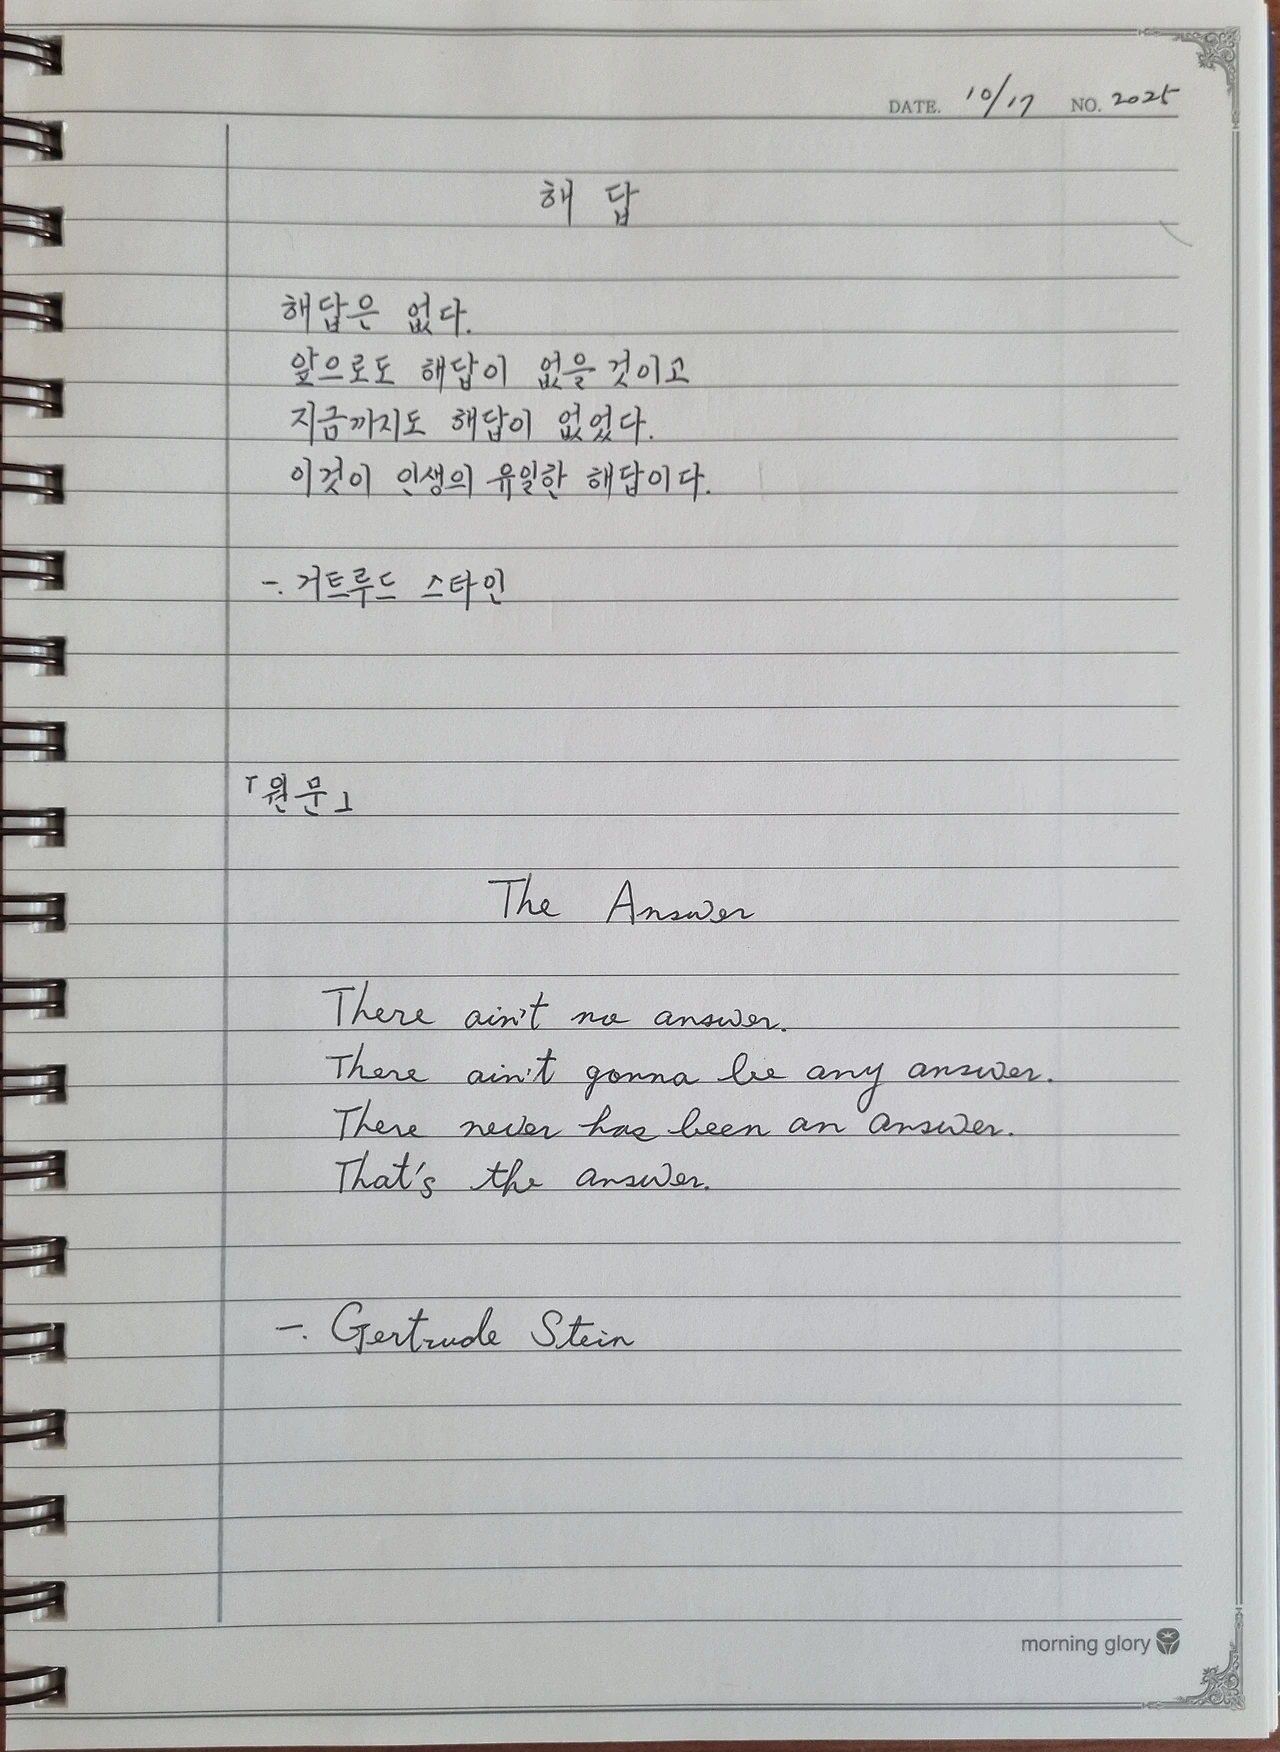 DATE. 10/17 NO. 2025
해 답
해답은 없다.
앞으로도 해답이 없을 것이고
지금까지도 해답이 없었다.
이것이 인생의 유일한 해답이다.
-. 거트루드 스타인
「원문」
The Answer
There ain't no answer.
There ain't gonna be any answer.
There never has been an answer.
That's the answer.
-. Gertrude Stein
morning glory